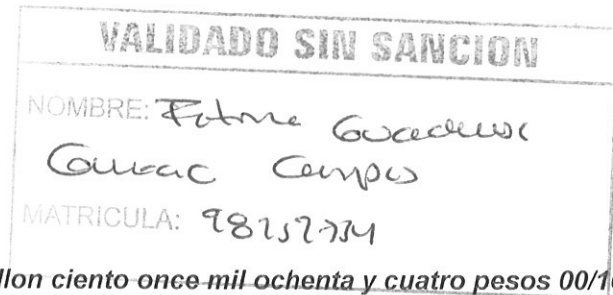 VALIDADO SIN SANCION
NOMBRE: Fatima Guadalupe
Campos
MATRICULA: 98252734
llon ciento once mil ochenta y cuatro pesos 00/1